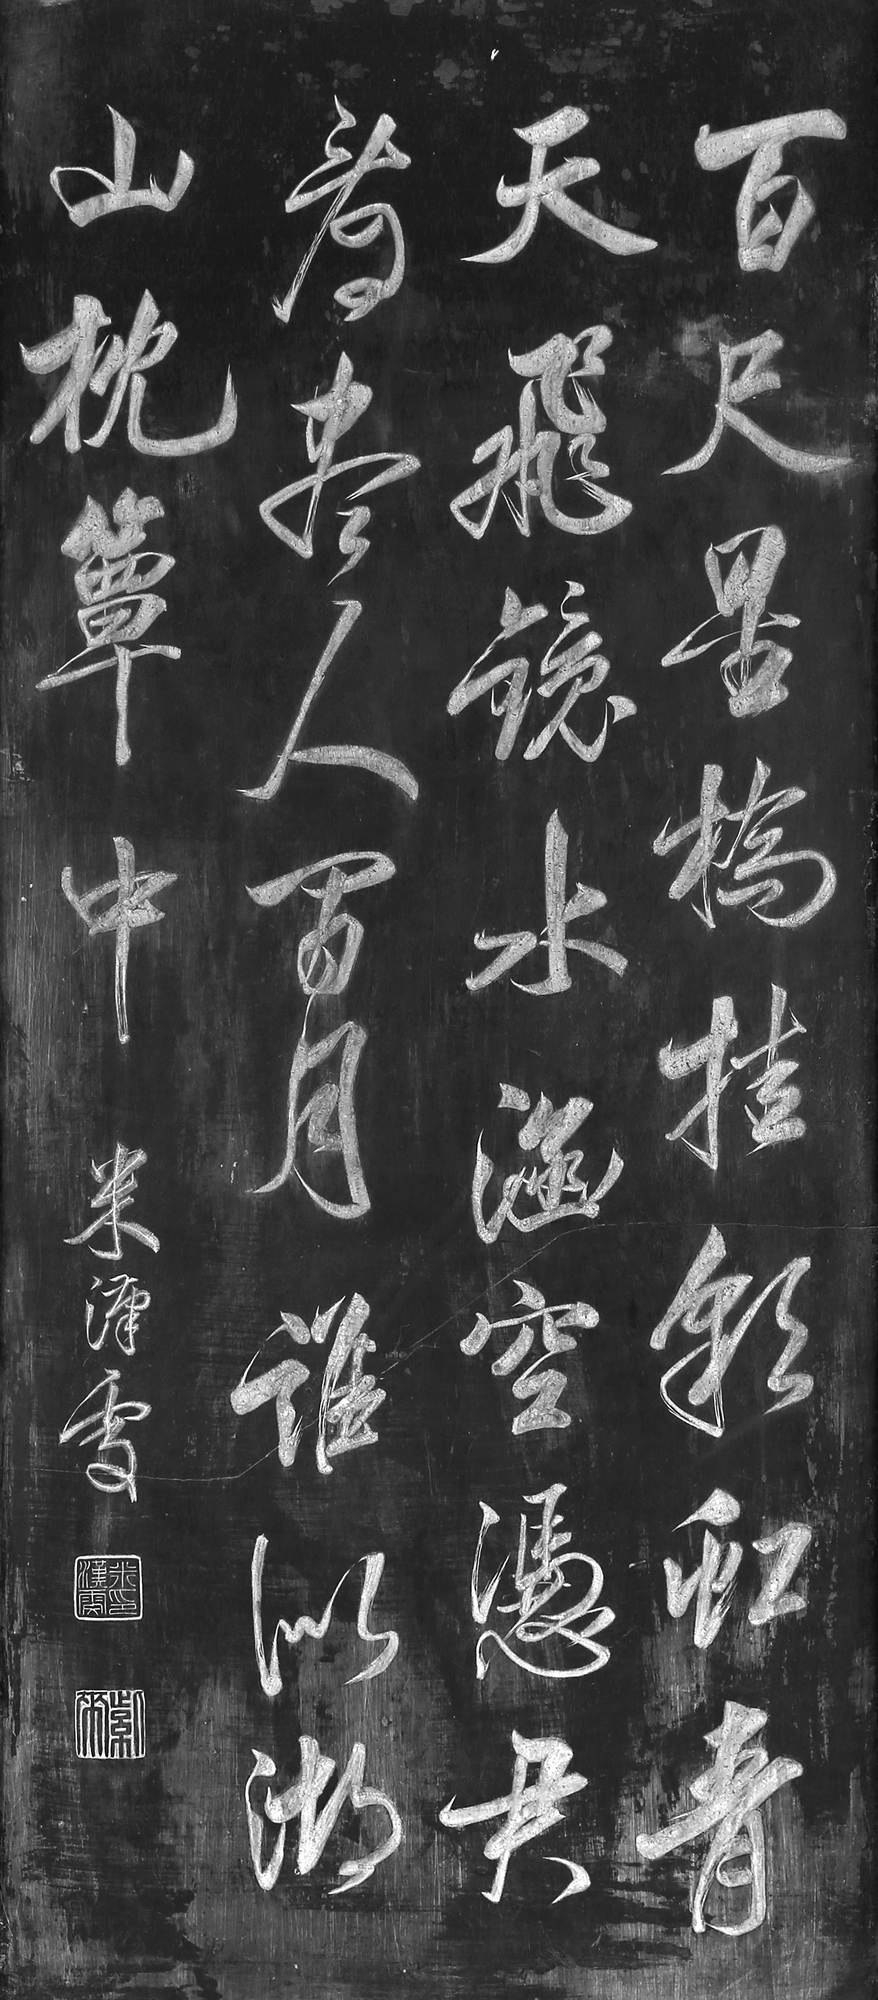 百尺星橋挂飲虹青
天飛鏡水涵空憑君
看盡人間月誰似湖
山枕簟中
米漢雯
米印漢雯
紫來